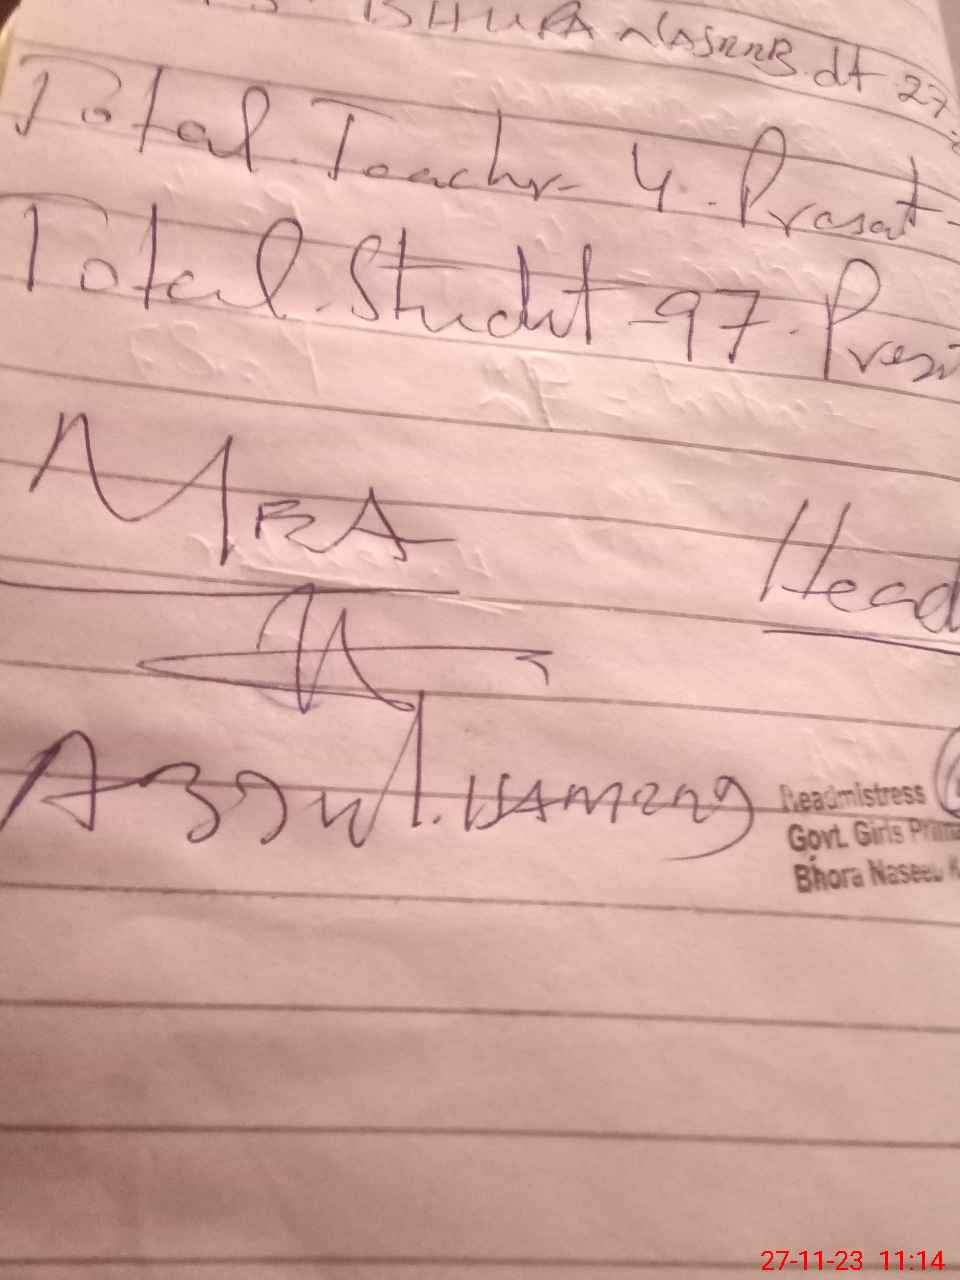 BHURA NASEEB. dt 27
Total Teachr - 4. Presat -
Total Studnt - 97. Presn
MEA
Head
Headmistress
Govt. Girls Prima
Bhora Naseeb K
27-11-23 11:14